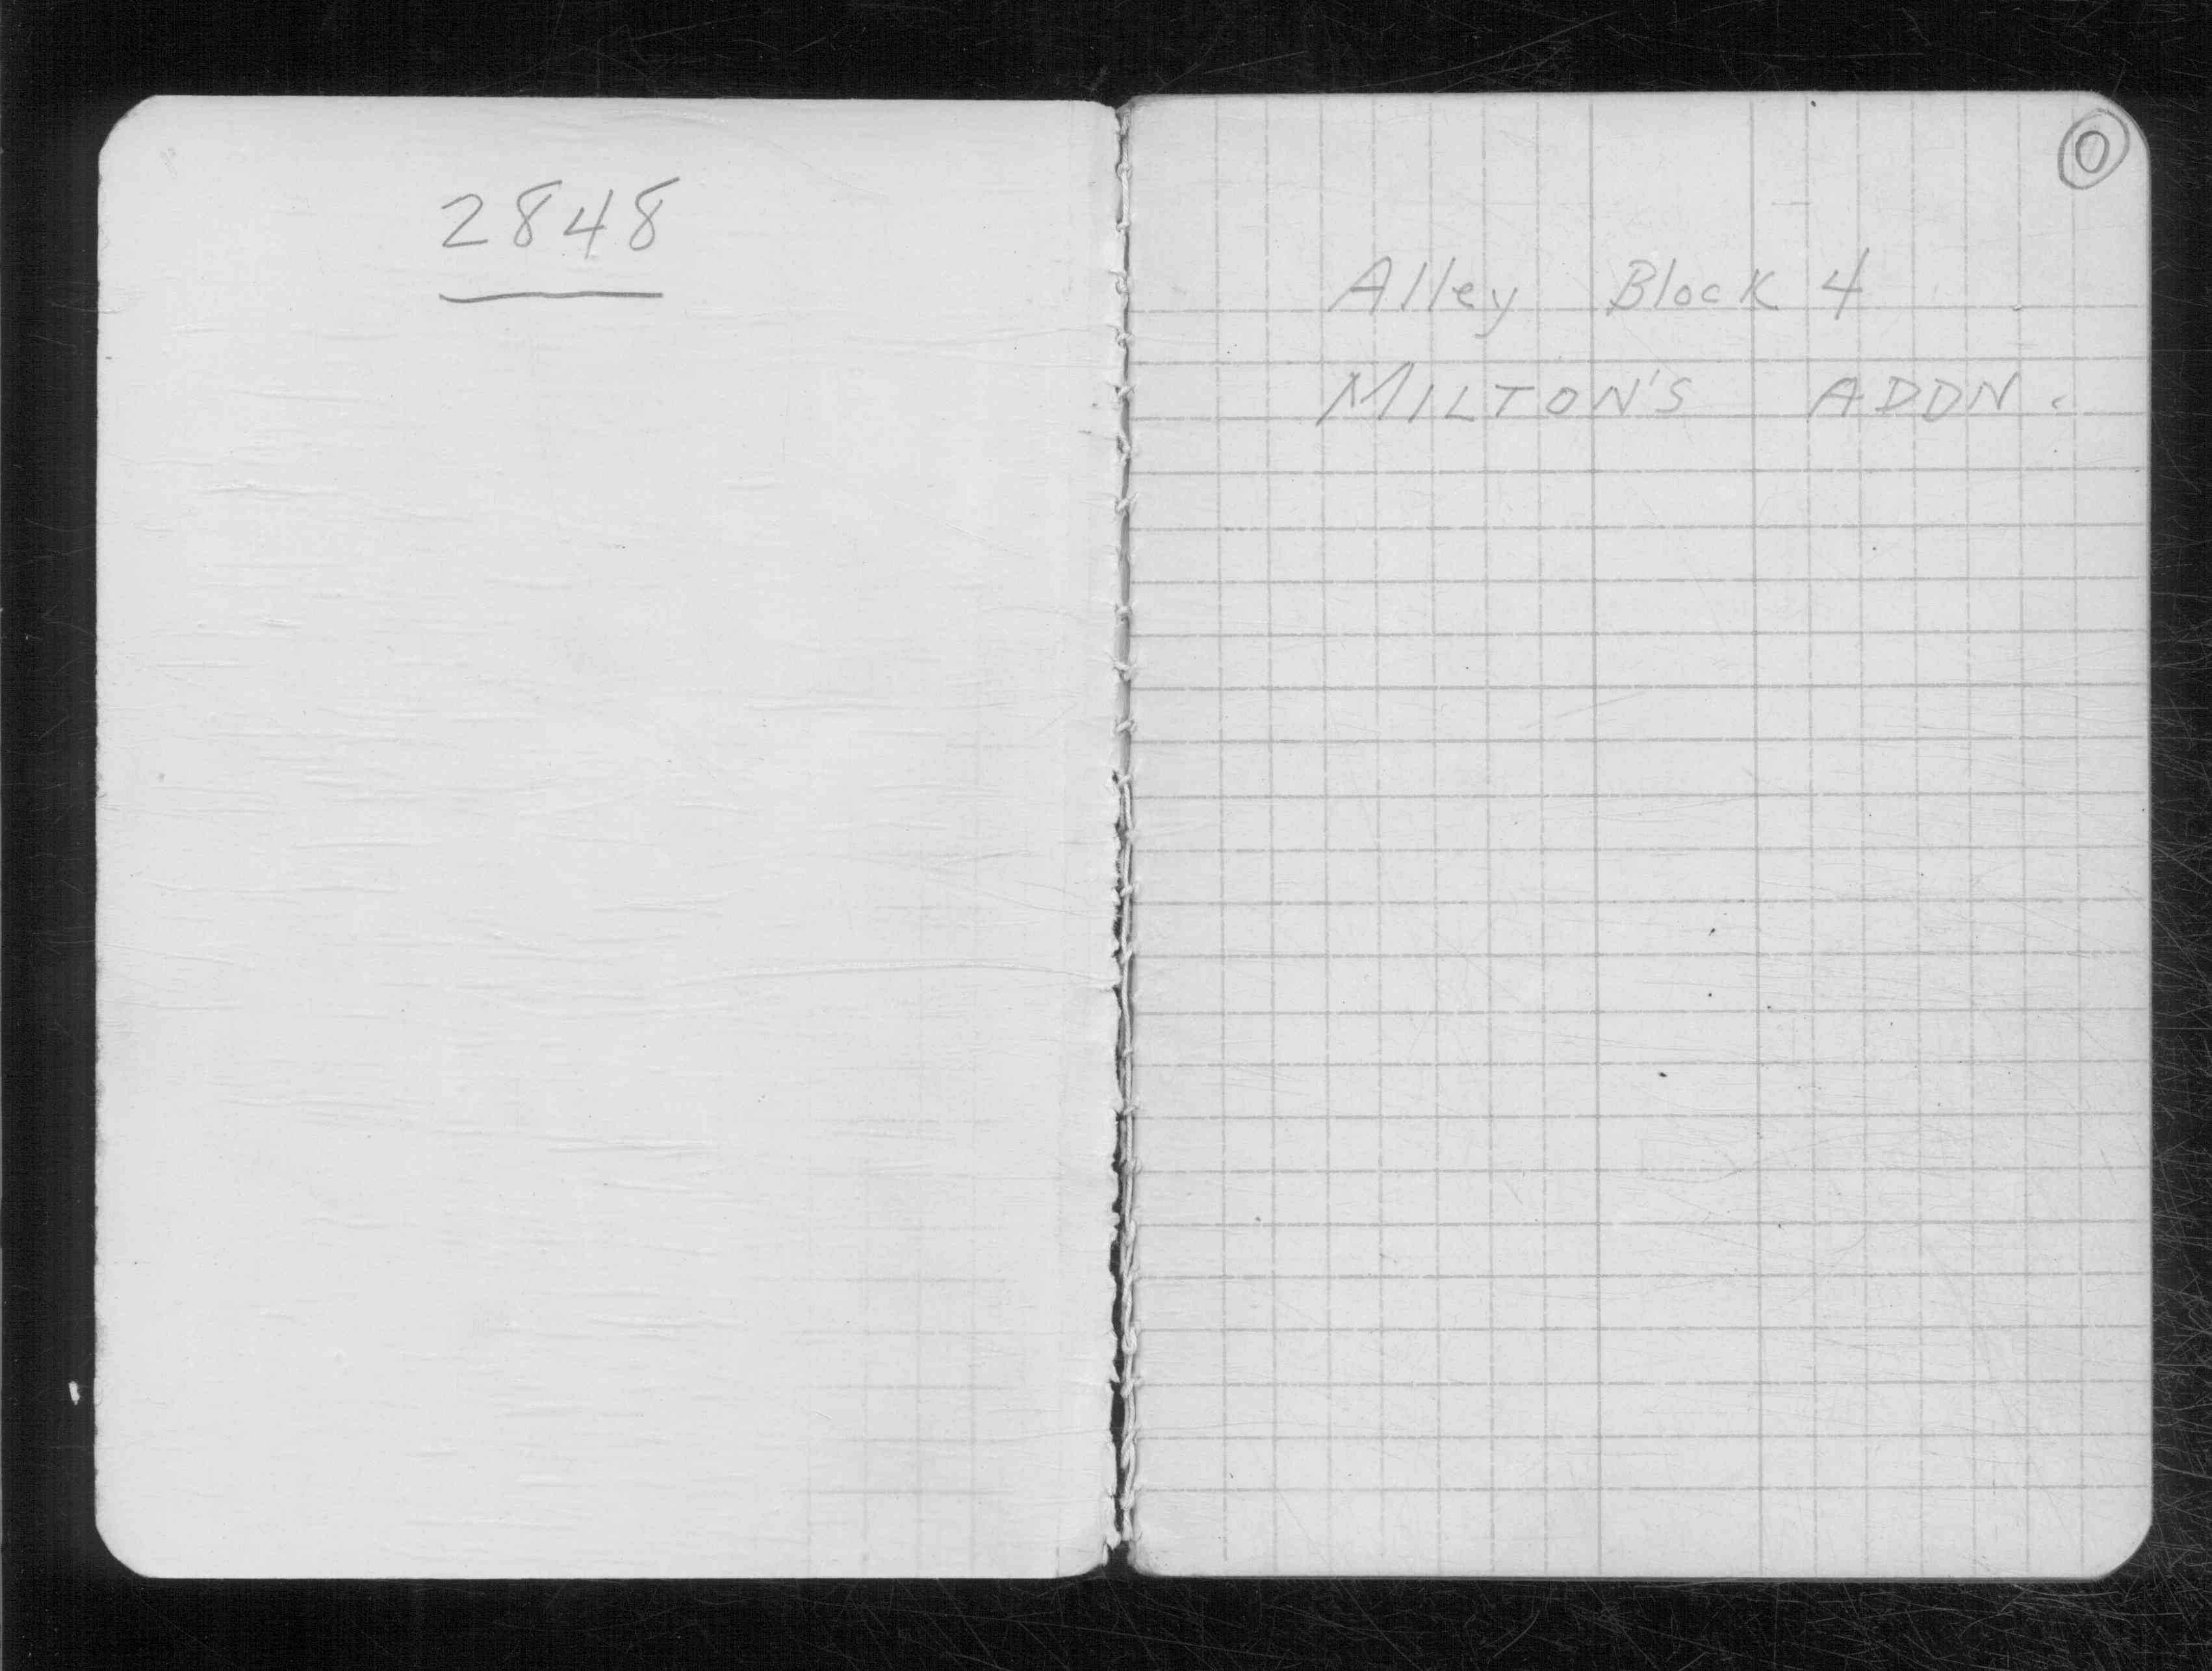 2848
0
Alley Block 4
MILTON'S ADDN.